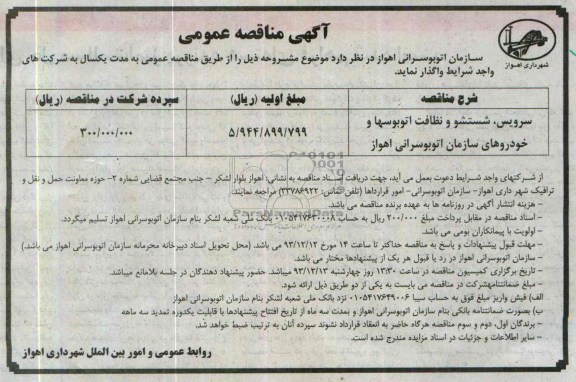 آگهی مناقصه عمومی
شهرداری اهواز
سازمان اتوبوسرانی اهواز در نظر دارد موضوع مشروحه ذیل را از طریق مناقصه عمومی به مدت یکسال به شرکت های
واجد شرایط واگذار نماید.
شرح مناقصه
مبلغ اولیه (ریال)
سپرده شرکت در مناقصه (ریال)
سرویس، شستشو و نظافت اتوبوسها و
خودروهای سازمان اتوبوسرانی اهواز
۵/۹۴۴/۸۹۹/۷۹۹
۳۰۰/۰۰۰/۰۰۰
از شرکتهای واجد شرایط دعوت بعمل می آید، جهت دریافت اسناد مناقصه به نشانی: اهواز بلوار لشکر - جنب مجتمع قضایی شماره ۲- حوزه معاونت حمل و نقل و
ترافیک شهر داری اهواز- سازمان اتوبوسرانی- امور قراردادها (تلفن تماس: ۳۳۷۸۶۹۲۲) مراجعه نمایند.
- هزینه انتشار آگهی در روزنامه ها به عهده برنده مناقصه می باشد.
- اسناد مناقصه در مقابل پرداخت مبلغ ۲۰۰/۰۰۰ ریال به حساب بانک ملی شعبه لشکر بنام سازمان اتوبوسرانی اهواز تسلیم میگردد.
- اولویت با پیمانکاران بومی می باشد.
- مهلت قبول پیشنهادات و پاسخ به مناقصه حداکثر تا ساعت ۱۴ مورخ ۹۳/۱۲/۱۲ می باشد. (محل تحویل اسناد دبیرخانه محرمانه سازمان اتوبوسرانی اهواز می باشد.)
- سازمان اتوبوسرانی اهواز در رد یا قبول هر یک از پیشنهادها مختار می باشد.
- تاریخ برگزاری کمیسیون مناقصه در ساعت ۱۳:۳۰ روز چهارشنبه ۹۳/۱۲/۱۳ میباشد. حضور پیشنهاد دهندگان در جلسه بلامانع میباشد.
- مبلغ ضمانتنامه شرکت در مناقصه می بایست به یکی از دو طریق ذیل ارائه شود.
الف) فیش واریز مبلغ فوق به حساب سیبا ۰۱۰۵۴۱۷۶۴۹۰۰۶ نزد بانک ملی شعبه لشکر بنام سازمان اتوبوسرانی اهواز
ب) بصورت ضمانتنامه بانکی بنام سازمان اتوبوسرانی اهواز و بمدت سه ماه از تاریخ افتتاح پیشنهادها با قابلیت یکدوره تمدید سه ماهه
- برندگان اول، دوم و سوم مناقصه هرگاه حاضر به انعقاد قرارداد نشوند سپرده آنان به ترتیب ضبط خواهد شد.
- سایر اطلاعات و جزئیات در اسناد مزایده مندرج شده است.
روابط عمومی و امور بین الملل شهرداری اهواز